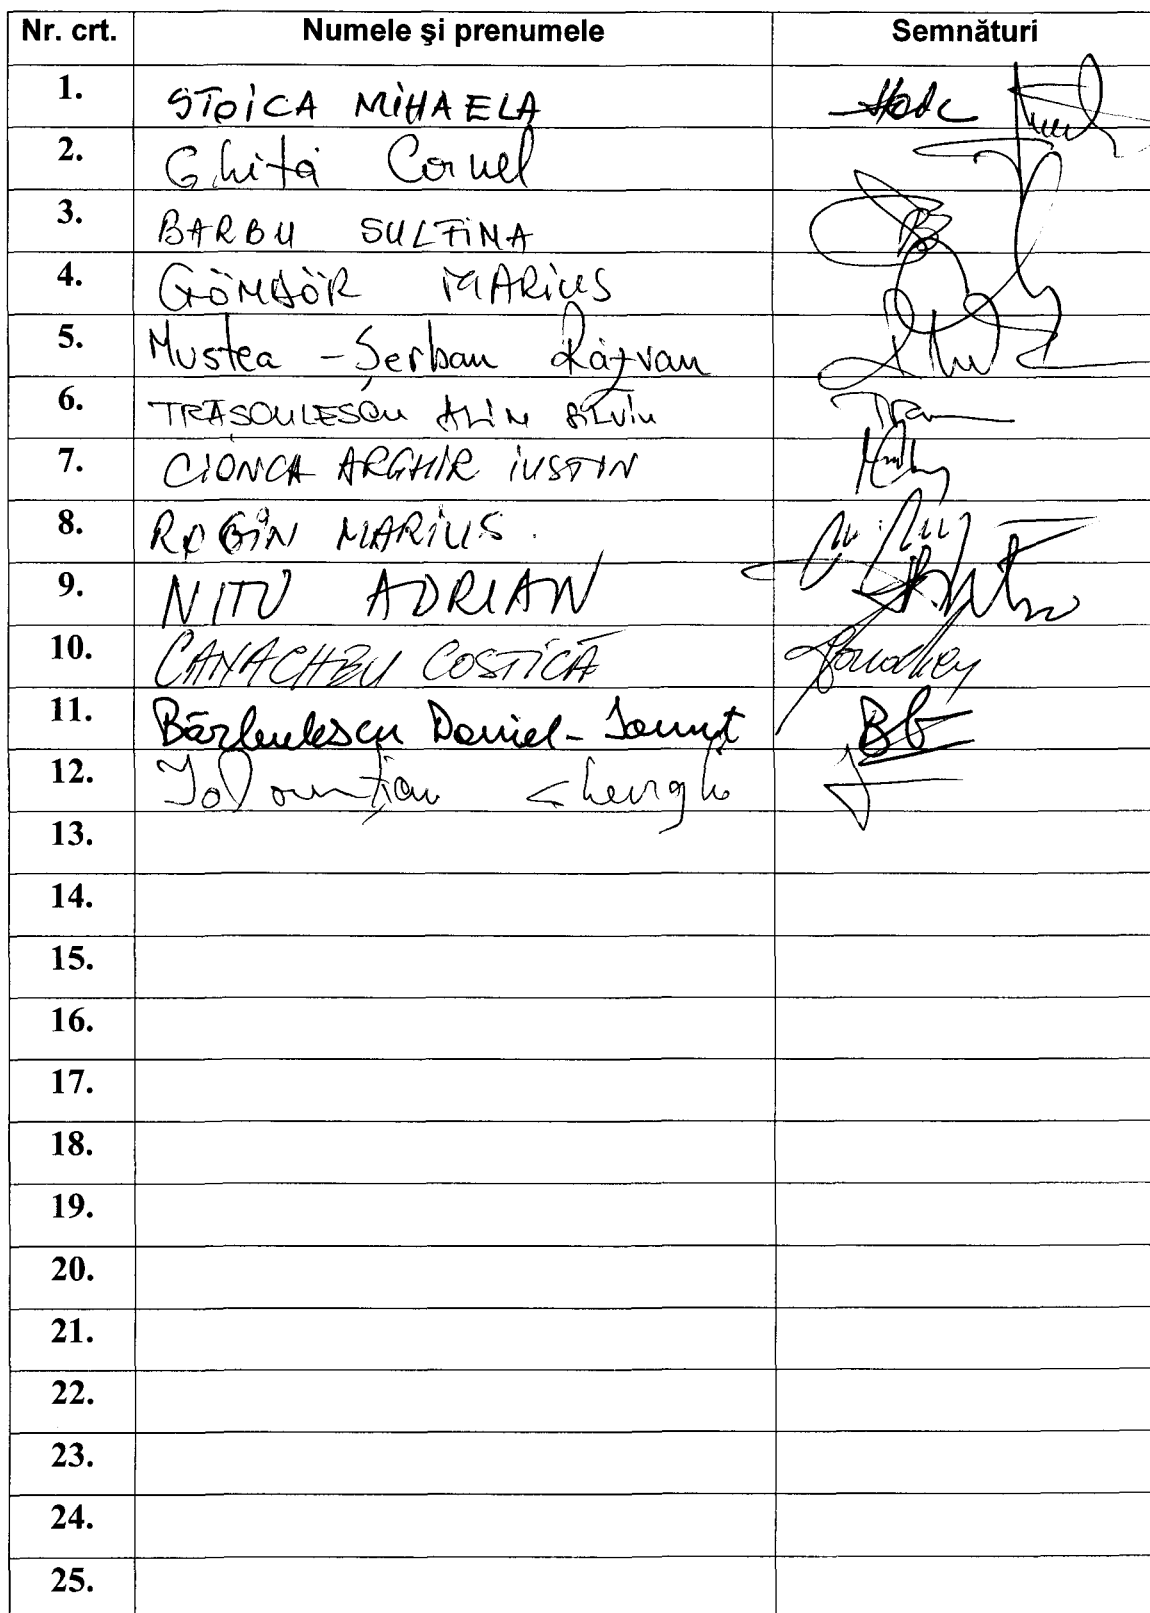 Nr. crt. Numele şi prenumele Semnături
1. STOICA MIHAELA
2. Ghiță Cornel
3. BARBU SULFINA
4. GÖMBÖR MARIUS
5. Mustea - Șerban Răzvan
6. ALIN SILVIU
7. CIONCA ARGHIR IUSTIN
8. MARIUS
9. NITU ADRIAN
10. COSTICĂ
11. Bărbulescu Daniel-Ionuț
12.
13.
14.
15.
16.
17.
18.
19.
20.
21.
22.
23.
24.
25.